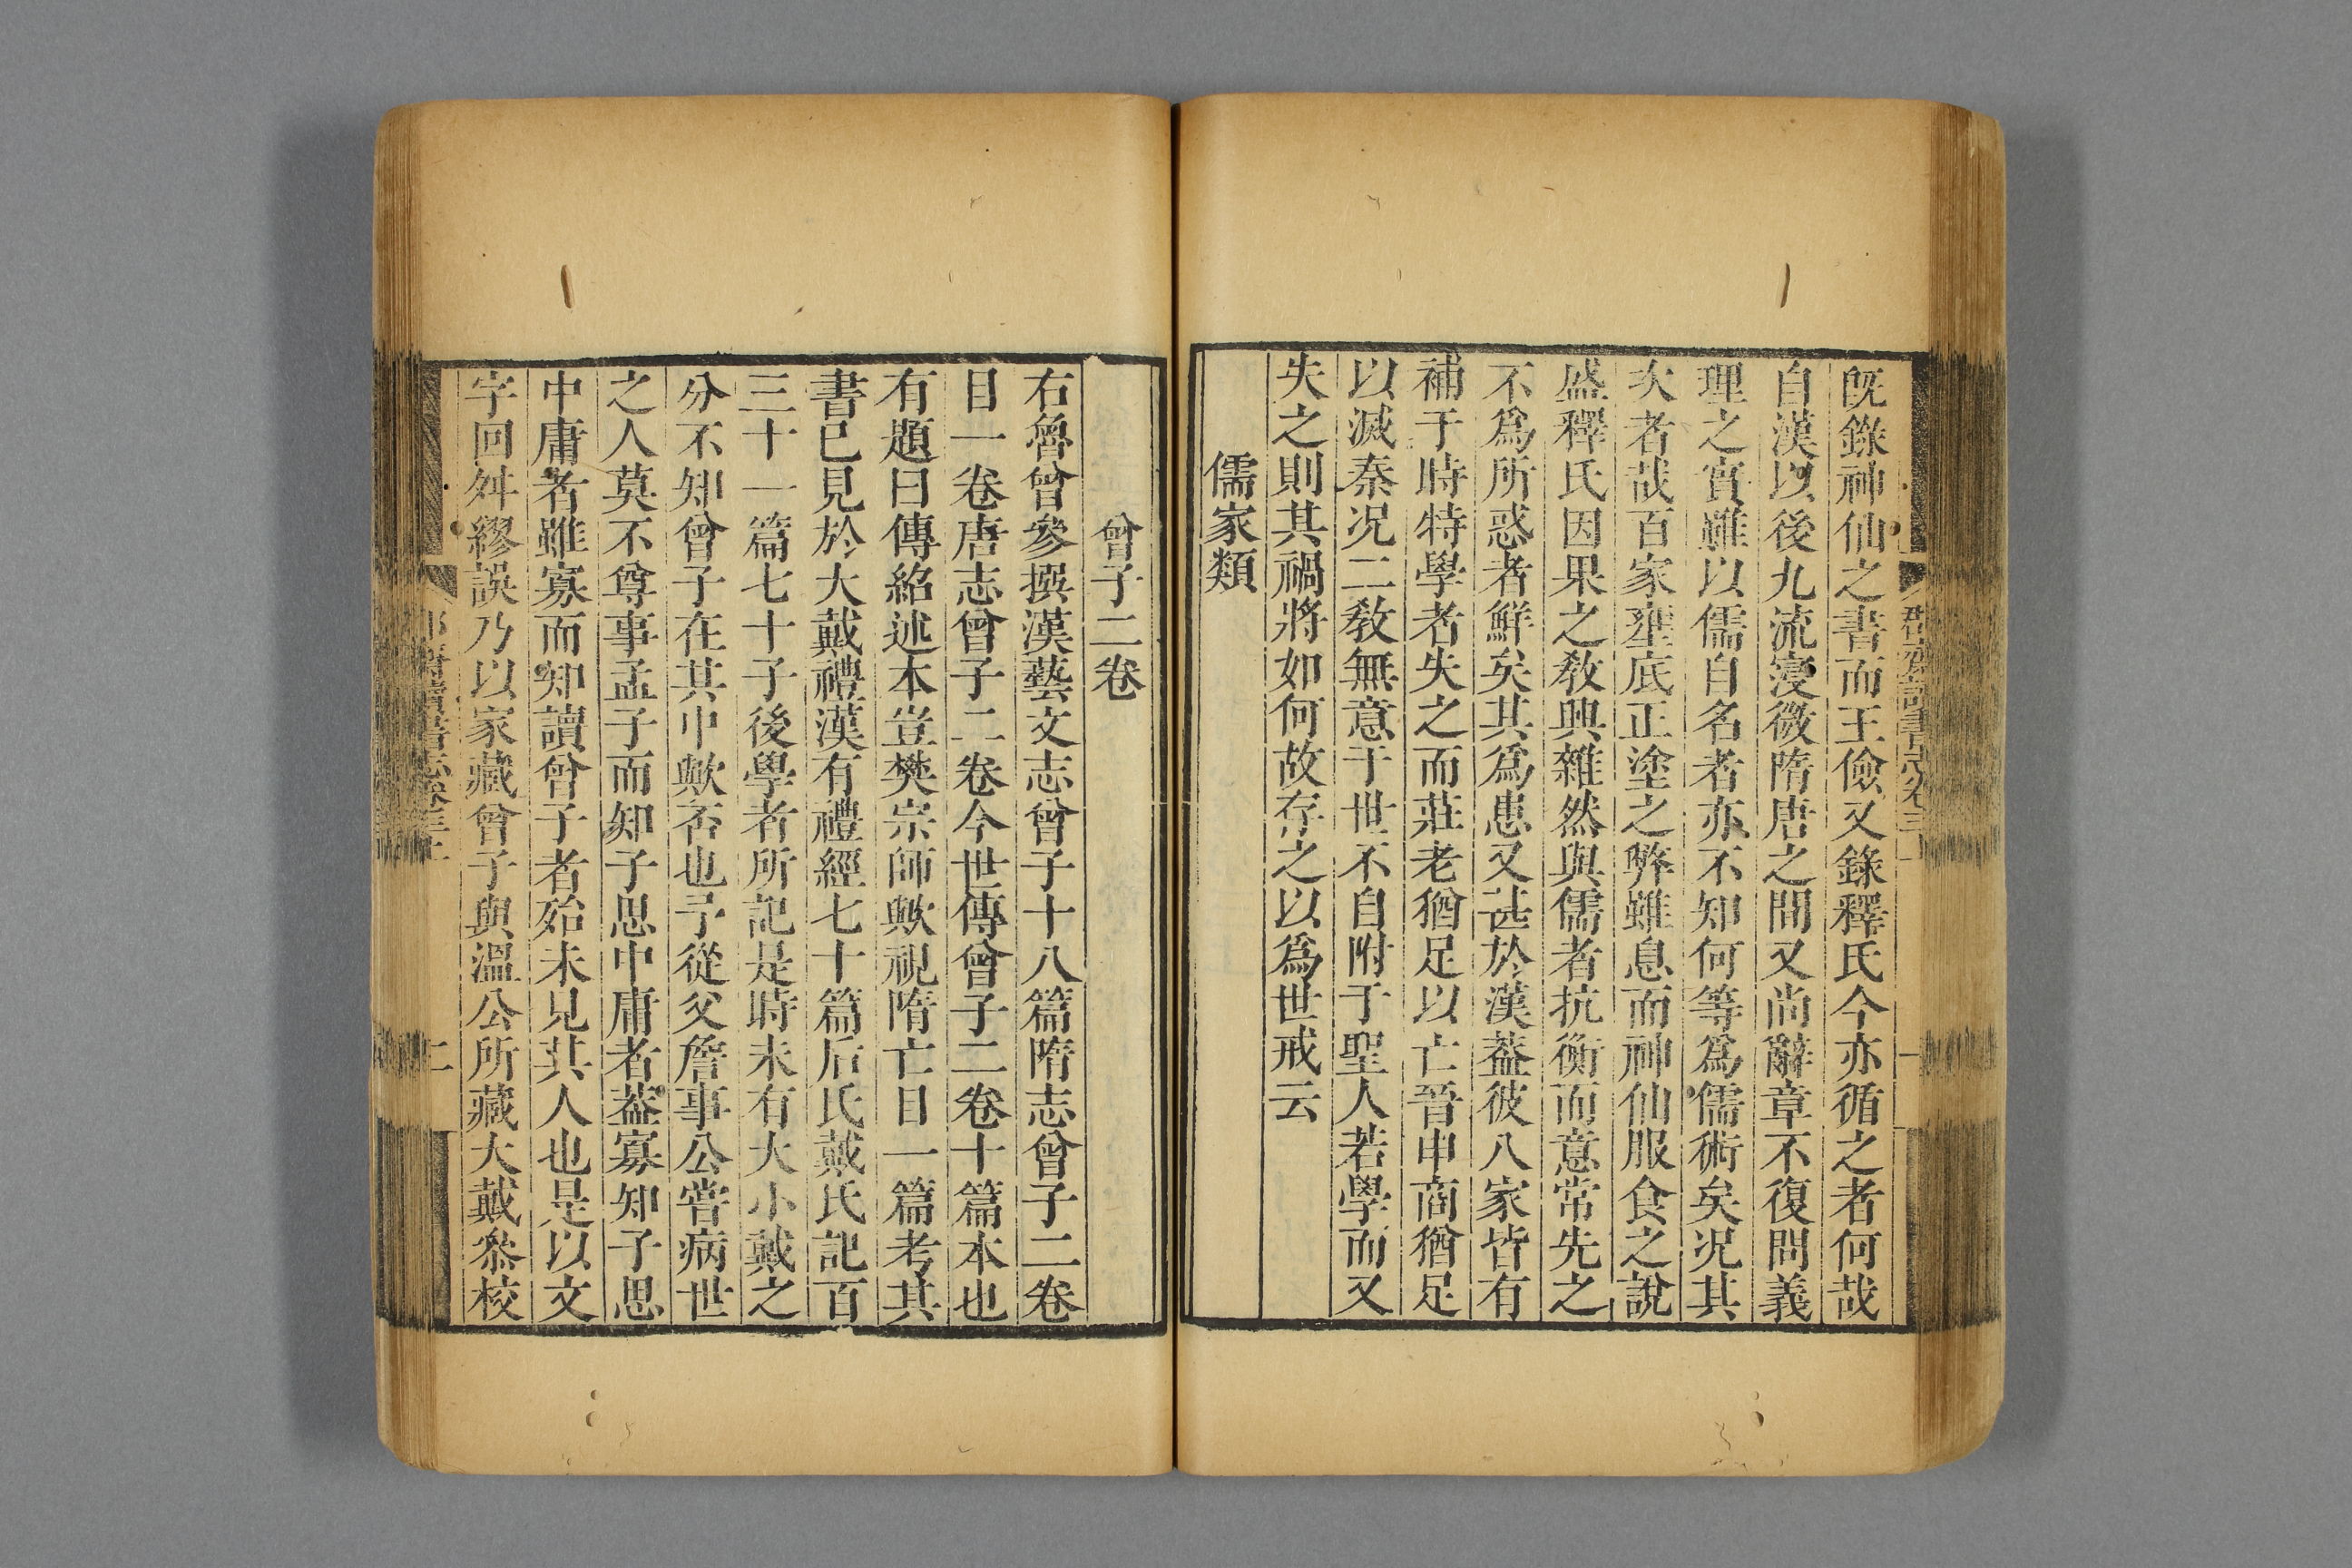 既錄神仙之書而王儉又錄釋氏今亦循之者何哉
自漢以後九流寖微隋唐之間又尚辭章不復問義
理之實雖以儒自名者亦不知何等爲儒術矣况其
次者哉百家壅底正塗之弊雖息而神仙服食之說
盛釋氏因果之敎興雜然與儒者抗衡而意常先之
不爲所惑者鮮矣其爲患又甚於漢葢彼八家皆有
補于時特學者失之而莊老猶足以亡晉申商猶足
以滅秦况二敎無意于世不自附于聖人若學而又
失之則其禍將如何故存之以爲世戒云
儒家類
曾子二卷
右魯曾參撰漢藝文志曾子十八篇隋志曾子二卷
目一卷唐志曾子二卷今世傳曾子二卷十篇本也
有題曰傳紹述本豈樊宗師歟視隋亡目一篇考其
書已見於大戴禮漢有禮經七十篇后氏戴氏記百
三十一篇七十子後學者所記是時未有大小戴之
分不知曾子在其中歟否也予從父詹事公嘗病世
之人莫不尊事孟子而知子思中庸者葢寡知子思
中庸者雖寡而知讀曾子者殆未見其人也是以文
字回舛繆誤乃以家藏曾子與溫公所藏大戴叅校
二